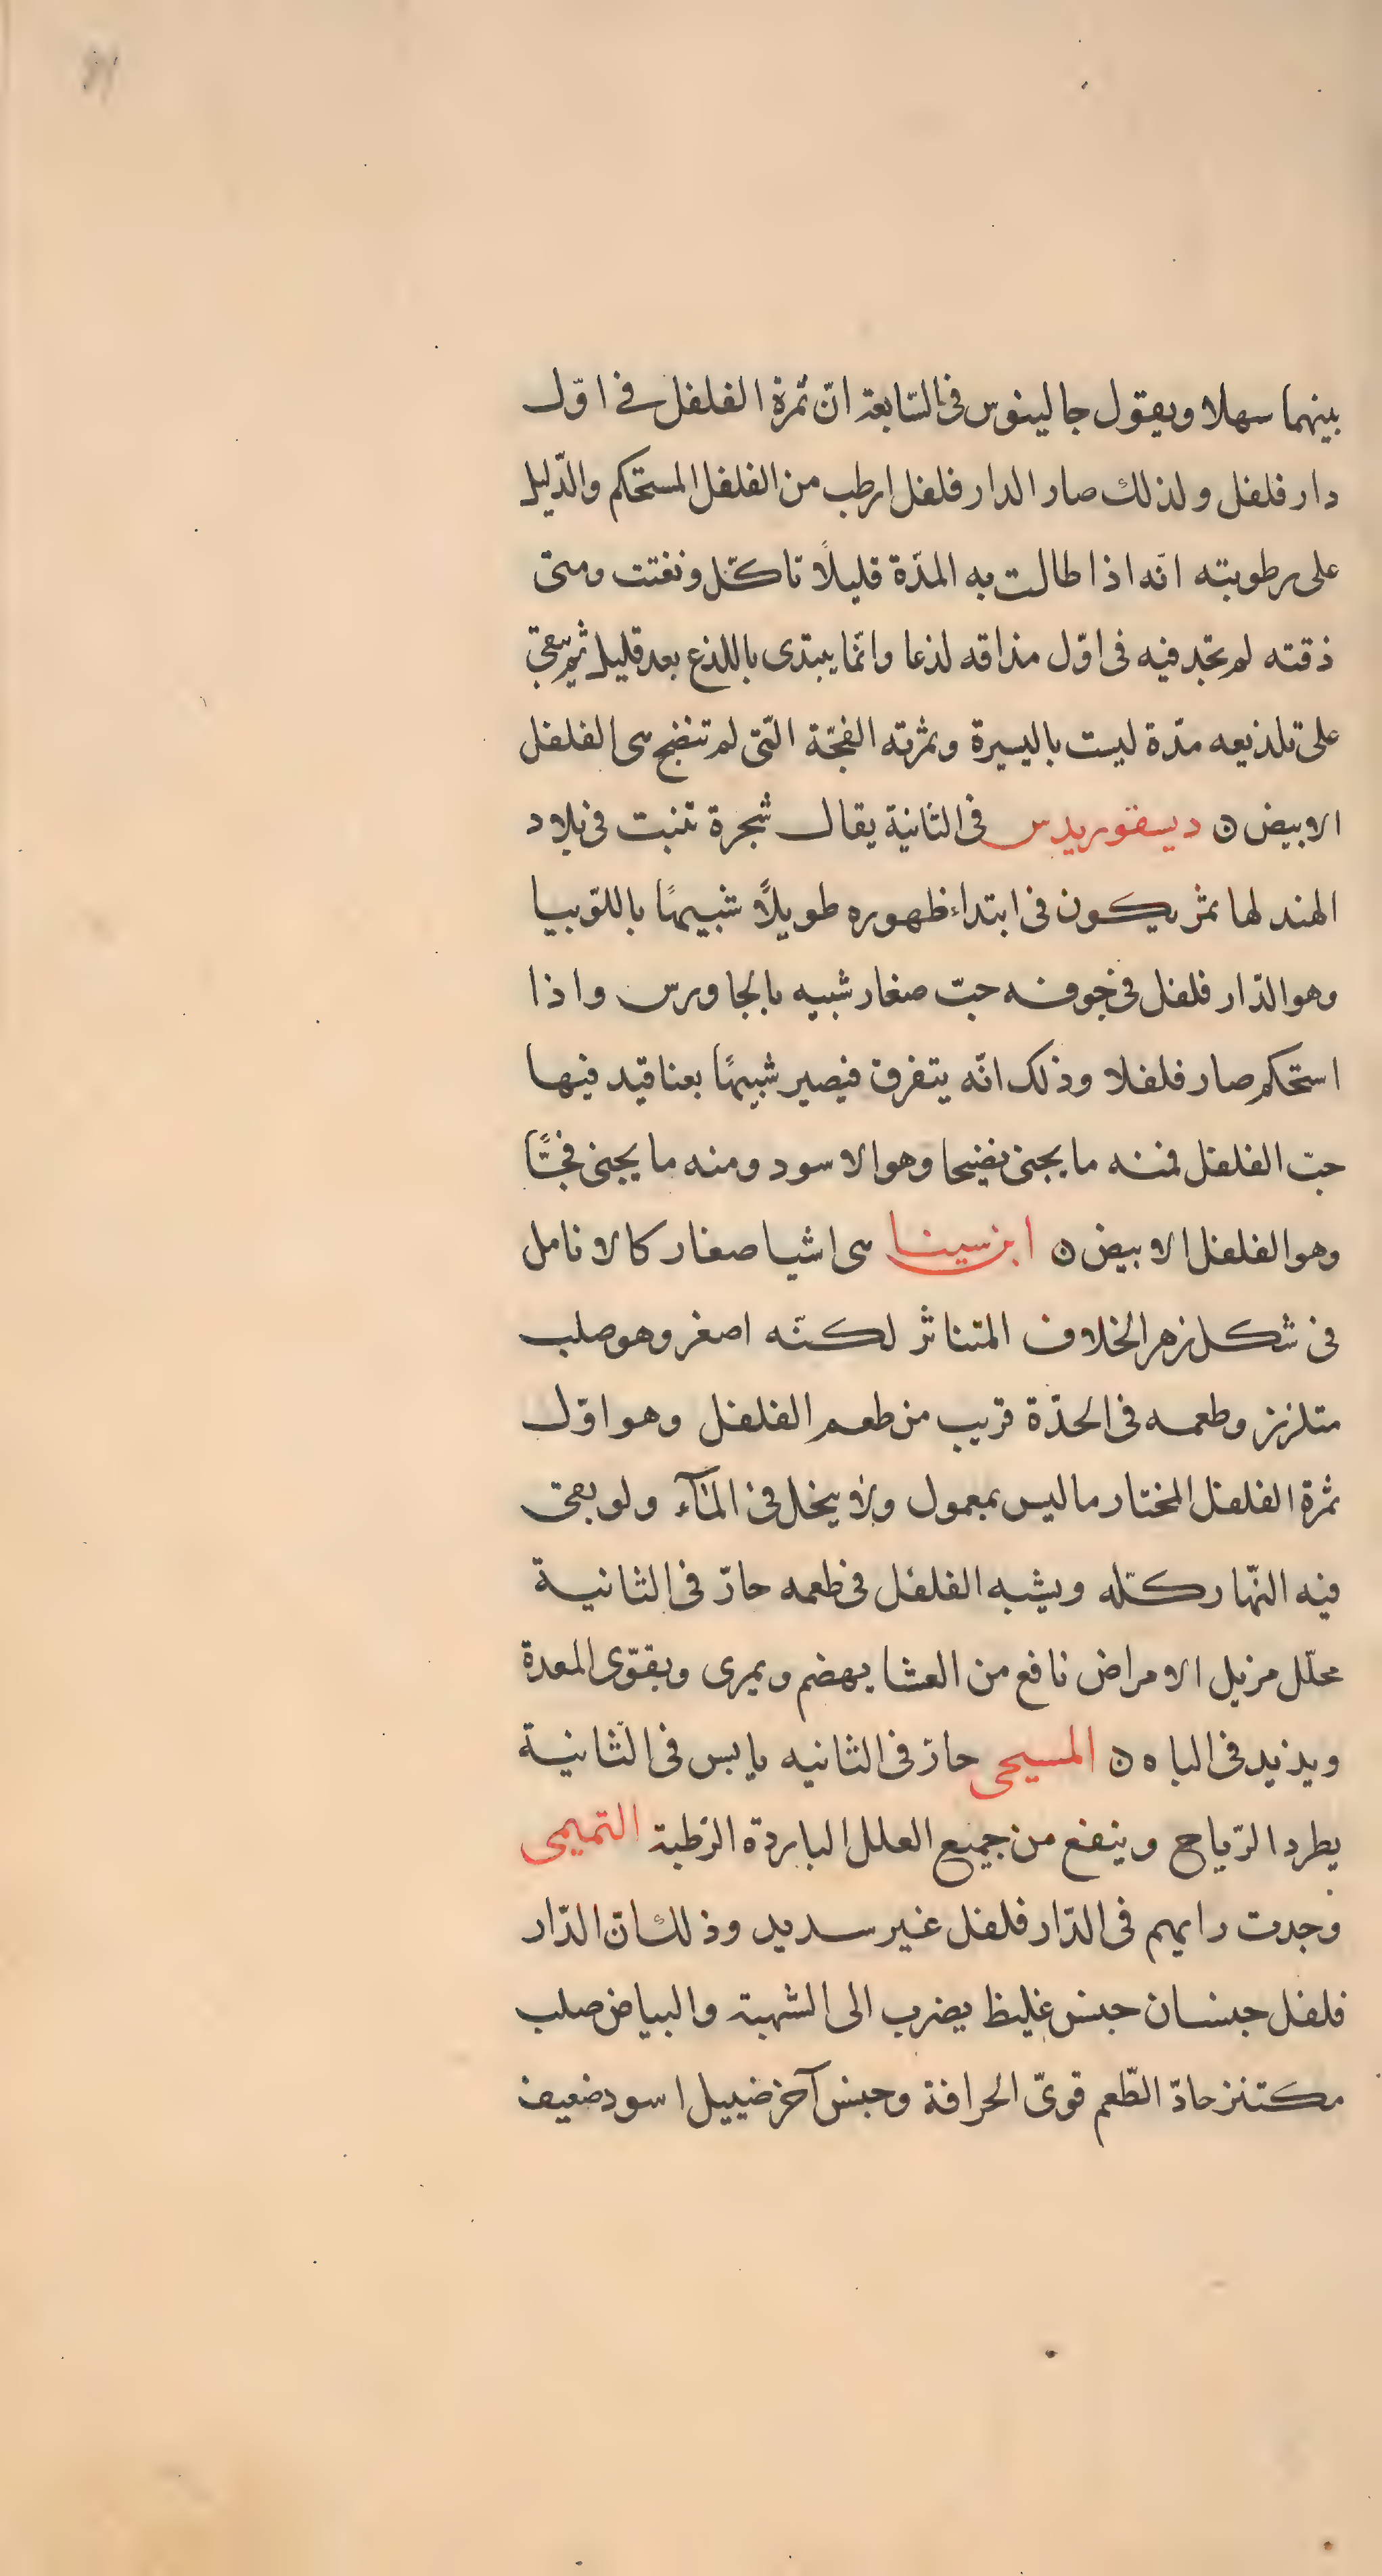 بينهما سهلا ويقول جالينوس فى السّابعة انّ ثمرة الفلفل فى اوّل
دار فلفل ولذلك صار الدار فلفل ارطب من الفلفل المستحكم والدّليل
على رطوبته انّه اذا طالت به المدّة قليلًا تاكّل وتفتت ومتى
ذقته لم تجد فيه فى اوّل مذاقه لذعا وانّما يبتدى باللذع بعد قليل ثم يبقى
على تلذيعه مدّة ليست باليسيرة وثمرته الفجّة التى لم تنضج هى الفلفل
الابيض ن ديسقوريدس فى الثانية يقال شجرة تنبت فى بلاد
الهند لها ثمر يكون فى ابتداء ظهوره طويلًا شبيهًا باللّوبيا
وهو الدّار فلفل فى جوفه حبّ صغار شبيه بالجاورس واذا
استحكم صار فلفلا وذلك انّه يتفرق فيصير شبيهًا بعناقيد فيها
حبّ الفلفل فمنه ما يجنى نضيجا وهو الاسود ومنه ما يجنى فجًّا
وهو الفلفل الابيض ن ابن سينا هى اشيا صغار كالانامل
فى شكل زهر الخلاف المتناثر لكنّه اصغر وهو صلب
متلزز وطعمه فى الحدّة قريب من طعم الفلفل وهو اوّل
ثمرة الفلفل المختار ما ليس بمعمول ولا يخل فى المآء ولو بقى
فيه النّهار كلّه ويشبه الفلفل فى طعمه حارّ فى الثانية
محلّل مزيل الامراض نافع من العشا يهضم ويمرى ويقوّى المعدة
ويزيد فى الباه ن المسيحى حارّ فى الثانيه يابس فى الثّانية
يطرد الرّياح وينفع من جميع العلل الباردة الرّطبة التميمى
وجدت رايهم فى الدّار فلفل غير سديد وذلك انّ الدّار
فلفل جنسان جنس غليظ يضرب الى الشهبة والبياض صلب
مكتنز حادّ الطّعم قوىّ الحرافة وجنس آخر ضييل اسود ضعيف